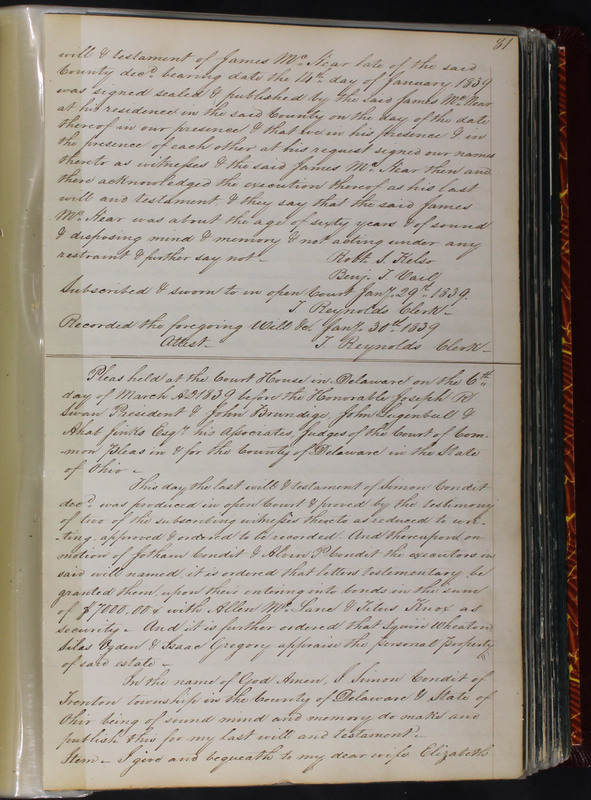 81
will & testament of James Mc. Near late of the said
County decd. bearing date the 14th day of January 1839
was signed sealed & published by the said James Mc. Near
at his residence in the said County on the day of the date
thereof in our presence & that we in his presence & in
the presence of each other at his request signed our names
thereto as witnesses & the said James Mc. Near then and
there acknowledged the execution thereof as his last
will and testament & they say that the said James
Mc. Near was about the age of sixty years & of sound
& disposing mind & memory & not acting under any
restraint & further say not - Robt. S. Kelso
Benj. T. Vail
Subscribed & sworn to in open Court Jany. 29th. 1839.
T. Reynolds Clerk -
Recorded the foregoing Will &c. Jany. 30th 1839
Attest - T. Reynolds Clerk -
Pleas held at the Court House in Delaware on the 6th
day of March AD 1839 before the Honorable Joseph R
Swan President & John Brundige, John Lugenbull &
Ahab Jinks Esqr. his Associates, Judges of the Court of Com-
mon Pleas in & for the County of Delaware in the State
of Ohio -
This day the last will & testament of Simon Condit
decd. was produced in open Court & proved by the testimony
of two of the subscribing witnesses thereto as reduced to wri-
-ting approved & ordered to be recorded. And thereupon on
motion of Jotham Condit & Alvin P Condit the executors in
said will named it is ordered that letters testamentary be
granted them, upon their entering into bonds in the sum
of $7000.00 with Allen Mc. Lane & Titus Knox as
security - And it is further ordered that Squire Wheaton
Silas Ogden & Isaac Gregory appraise the personal property
of said estate -
In the name of God Amen, I Simon Condit of
Trenton township in the County of Delaware & State of
Ohio being of sound mind and memory do make and
publish this for my last will and testament. -
Item - I give and bequeath to my dear wife Elizabeth